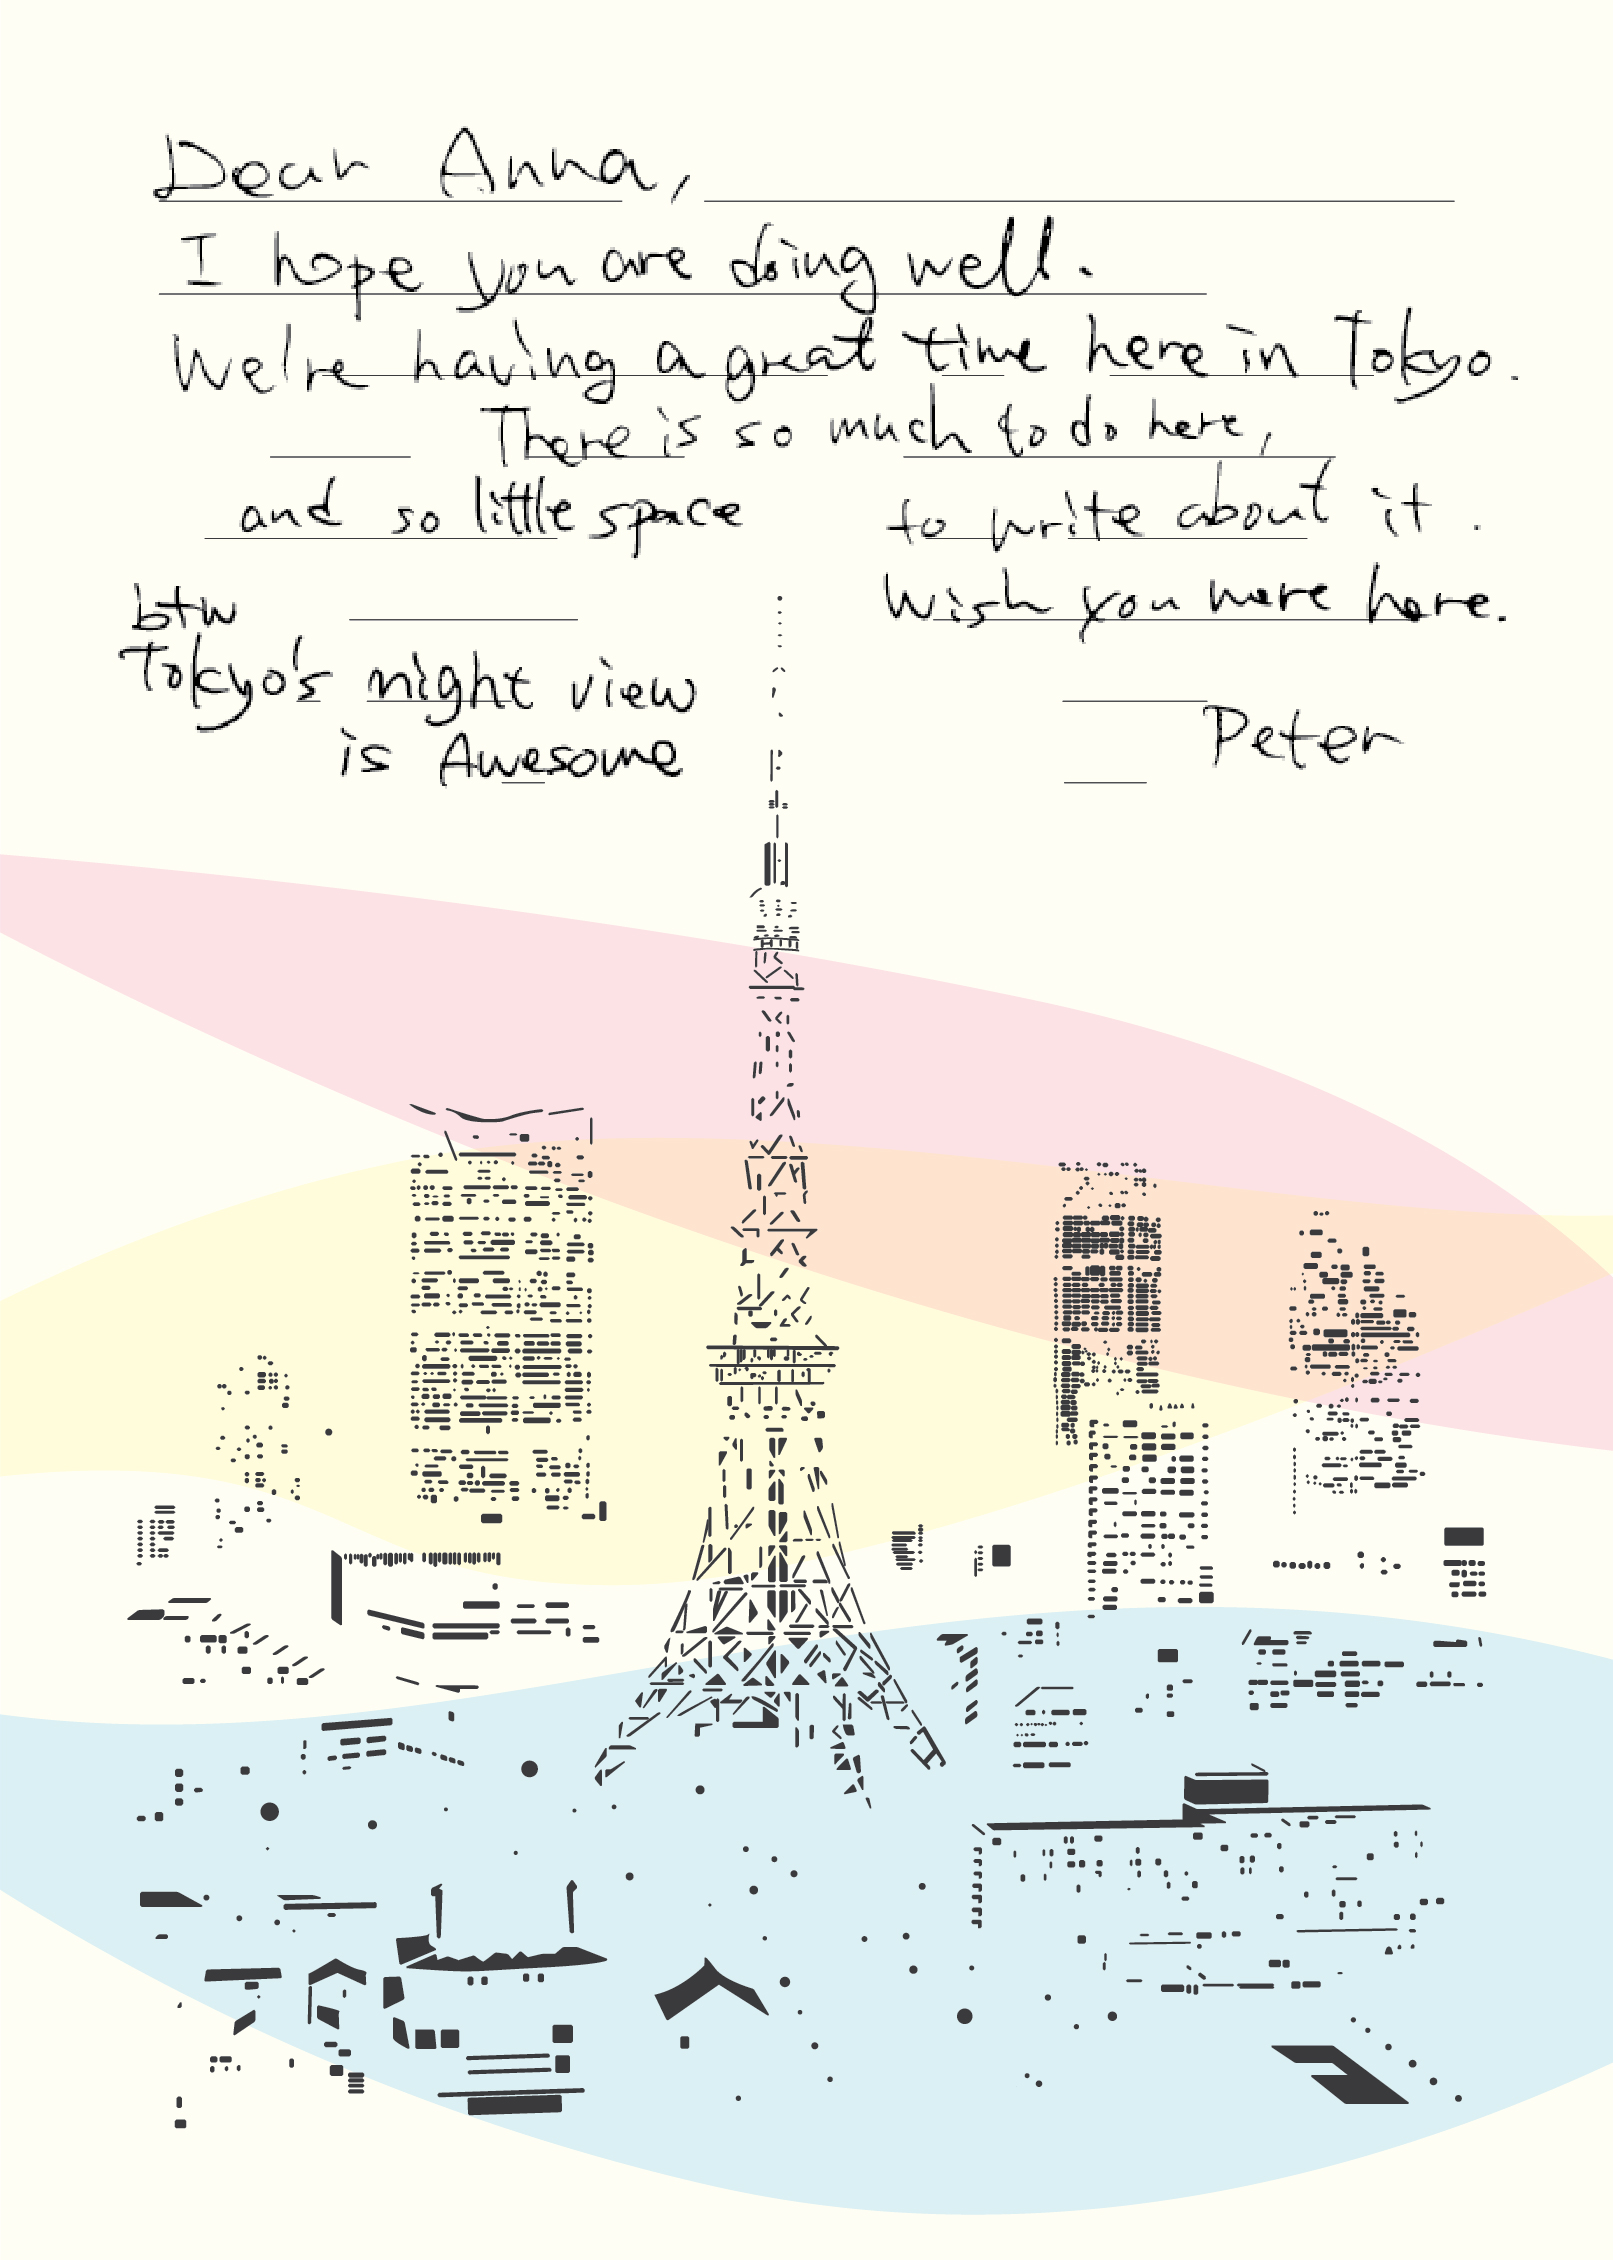 Dear Anna,
I hope you are doing well.
We're having a great time here in Tokyo.
There is so much to do here,
and so little space to write about it.
Wish you were here.
btw
Tokyo's night view
is Awesome
Peter